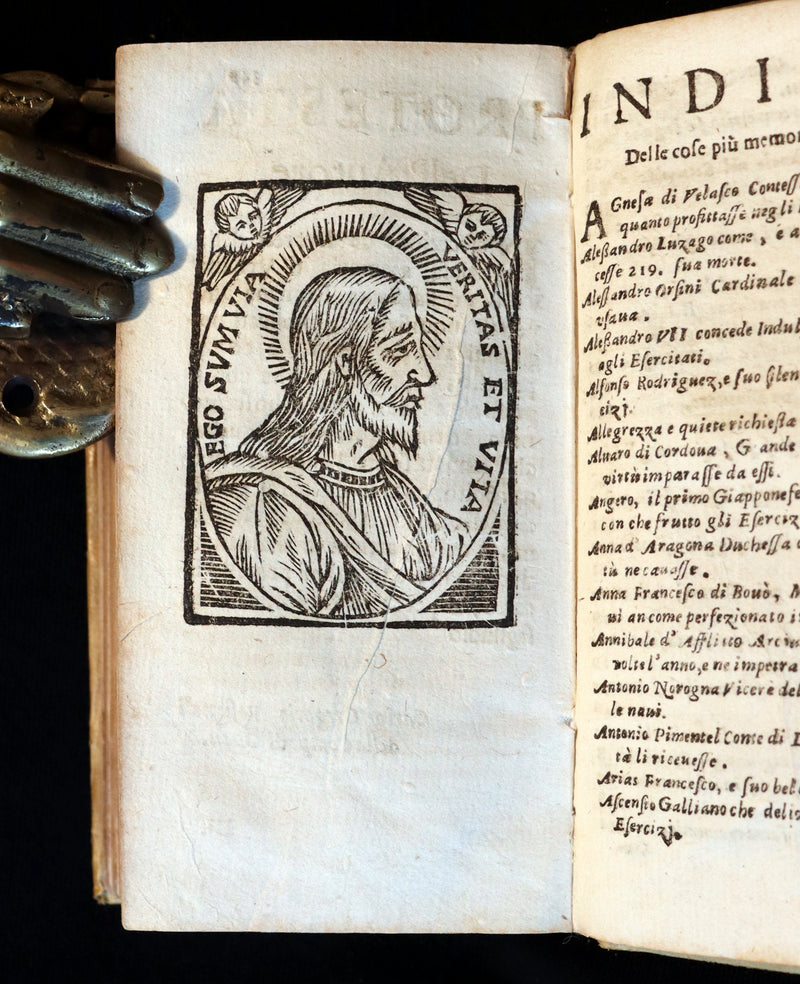 EGO SUM VIA
VERITAS ET VITA
INDI
Delle coſe più memor
AGneſa di Velaſco Conteſſ
quanto profittaſſe negli
Aleſſandro Luzago come, e a
ceſſe 219. ſua morte.
Aleſſandro Orſini Cardinale
vſaua.
Aleſſandro VII concede Indul
agli Eſercitati.
Alfonſo Rodriguez, e ſuo ſilen
cizj.
Allegrezza e quiete richieſta
Aluaro di Cordoua, G ande
virtù imparaſſe da eſſi.
Angero, il primo Giapponeſe
con che frutto gli Eſerciz
Anna d' Aragona Ducheſſa
tù ne cauaſſe.
Anna Franceſco di Bouò, M
ui an come perfezionato i
Annibale d' Afflitto Arciu
volte l'anno, e ne impetra
Antonio Norogna Vicerè del
le naui.
Antonio Pimentel Conte di
tà li riceueſſe.
Arias Franceſco, e ſuo bel
Aſcenſio Galliano che
Eſercizj.